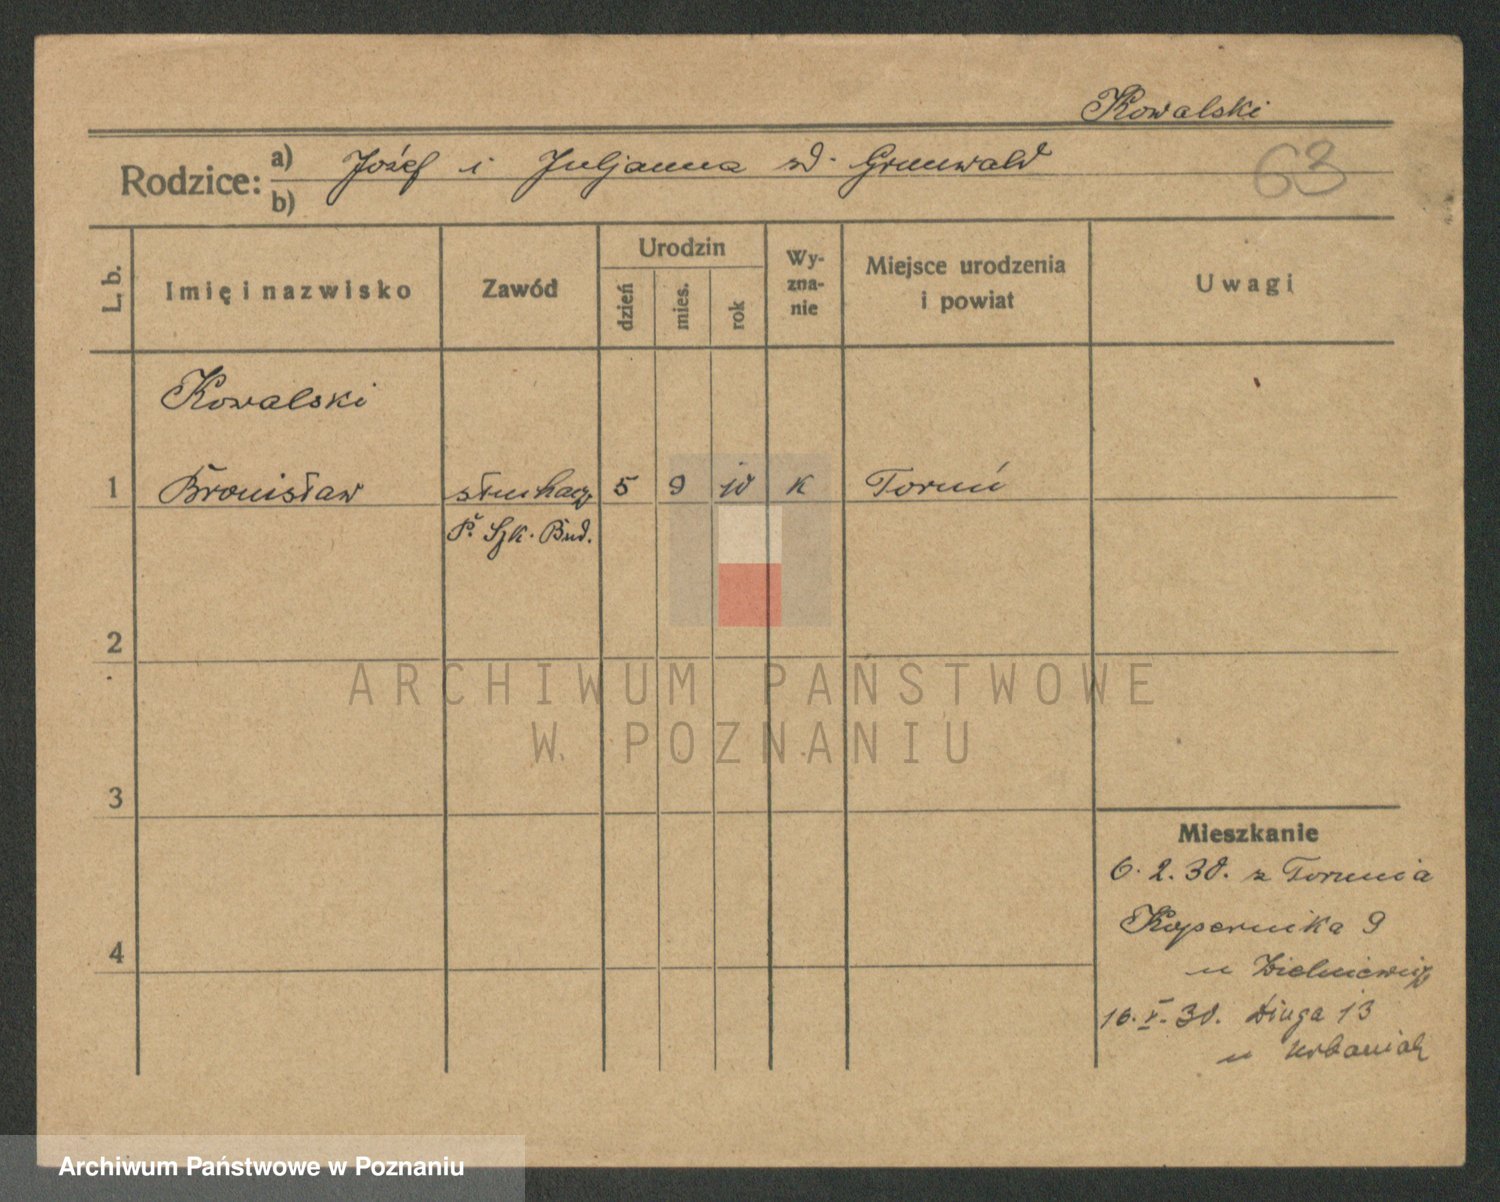 Kowalski
Rodzice: a) Józef i Juljanna zd. Grunwald
b)
63
L. b. Imię i nazwisko Zawód Urodzin dzień mies. rok Wy-zna-nie Miejsce urodzenia i powiat Uwagi
Kowalski
1 Bronisław słuchacz 5 9 10 k Toruń
P. Szk. Bud.
2
ARCHIWUM PAŃSTWOWE
W POZNANIU
3
Mieszkanie
6. 2. 30. z Torunia
Kopernika 9
4
u
16. V. 30. Długa 13
u Urbaniak
Archiwum Państwowe w Poznaniu